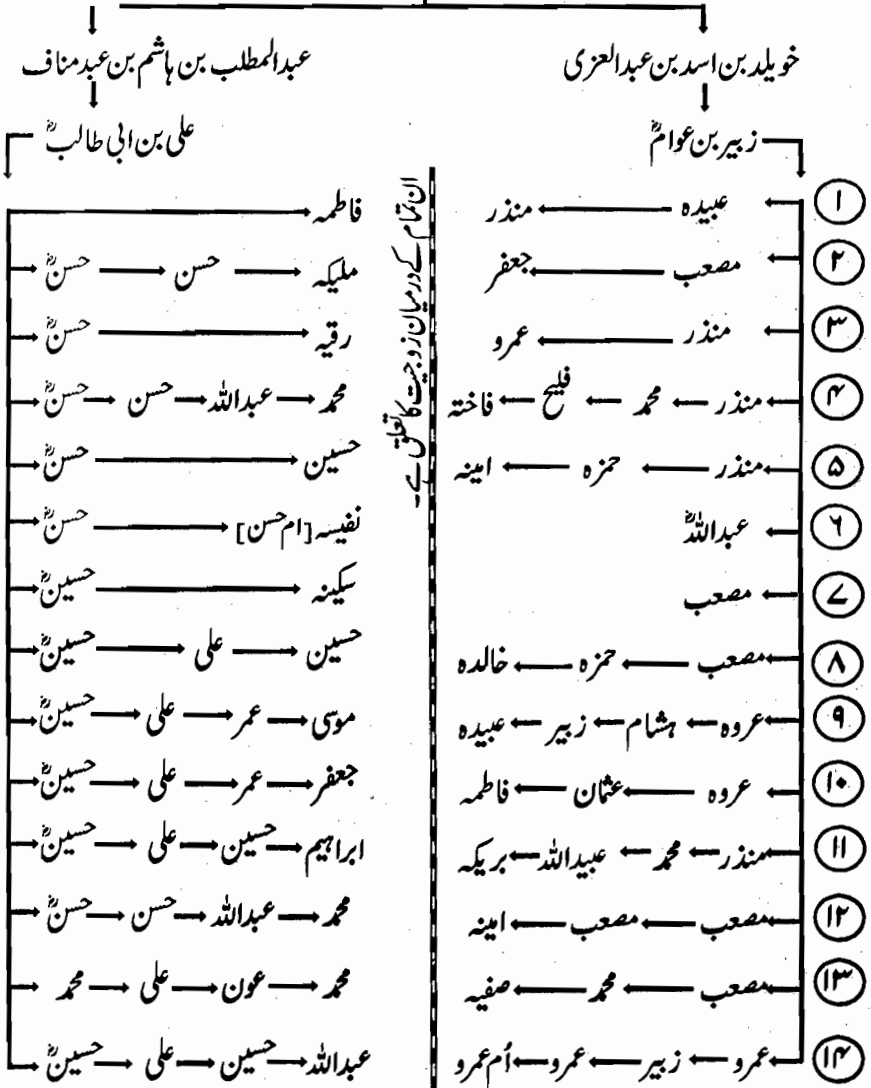 خویلد بن اسد بن عبدالعزی عبدالمطلب بن ہاشم بن عبد مناف
زبیر بن عوامؓ علی بن ابی طالبؓ
ان تمام کے درمیان زوجیت کا تعلق ہے۔
۱ عبیدہ منذر فاطمہ
۲ مصعب جعفر ملیکہ حسن حسنؓ
۳ منذر عمرو رقیہ حسنؓ
۴ منذر محمد فلیح فاختہ محمد عبداللہ حسن حسنؓ
۵ منذر حمزہ امینہ حسین حسنؓ
۶ عبداللہؓ نفیسہ [ام حسن] حسنؓ
۷ مصعب سکینہ حسینؓ
۸ مصعب حمزہ خالدہ حسین علی حسینؓ
۹ عروہ ہشام زبیر عبیدہ موسی عمر علی حسینؓ
۱۰ عروہ عثمان فاطمہ جعفر عمر علی حسینؓ
۱۱ منذر محمد عبیداللہ بریکہ ابراہیم حسین علی حسینؓ
۱۲ مصعب مصعب امینہ محمد عبداللہ حسن حسنؓ
۱۳ مصعب محمد صفیہ محمد عون علی محمد
۱۴ عمرو زبیر عمرو اُم عمرو عبداللہ حسین علی حسینؓ